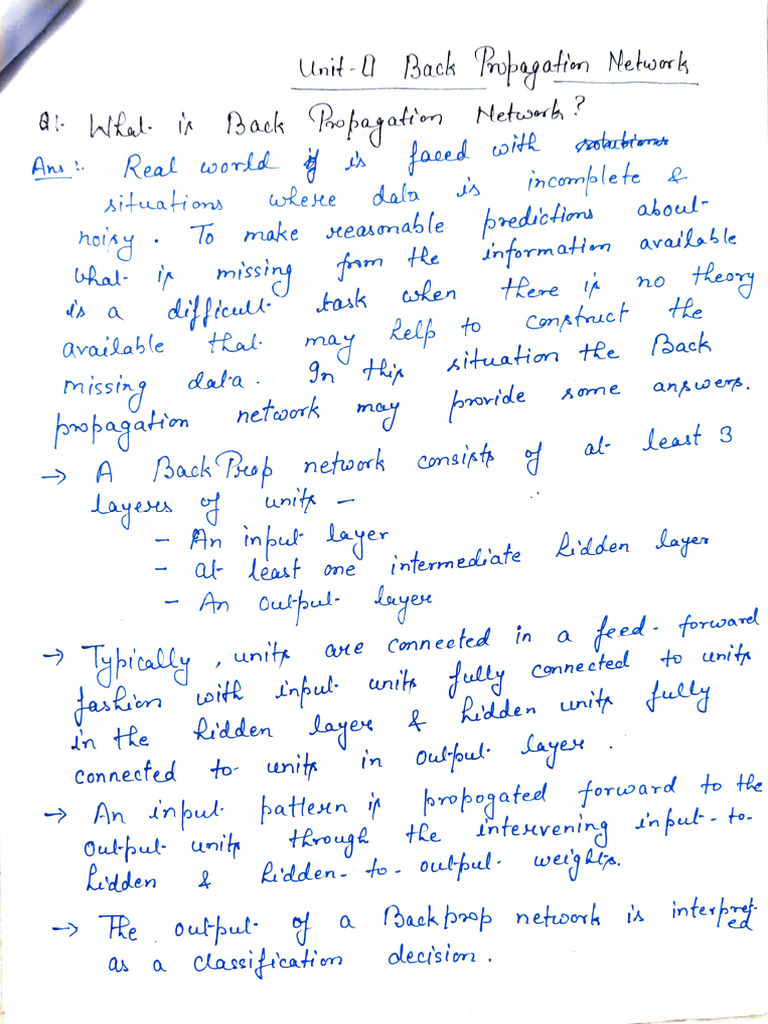 Unit-II Back Propagation Network
Q1. What is Back Propagation Network?
Ans :- Real world is faced with
situations where data is incomplete &
noisy. To make reasonable predictions about
what is missing from the information available
is a difficult task when there is no theory
available that may help to construct the
missing data. In this situation the Back
propagation network may provide some answers.
→ A BackProp network consists of at least 3
layers of units -
- An input layer
- at least one intermediate hidden layer
- An output layer
→ Typically, units are connected in a feed-forward
fashion with input units fully connected to units
in the hidden layer & hidden units fully
connected to units in output layer.
→ An input pattern is propogated forward to the
output units through the intervening input-to-
hidden & hidden-to-output weights.
→ The output of a Backprop network is interpret-
ed
as a classification decision.